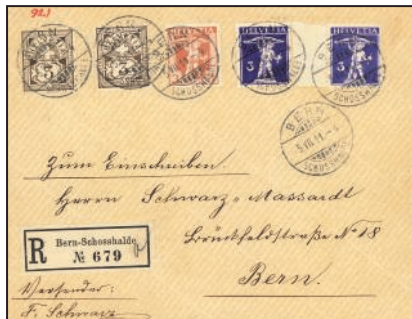 92.)
HELVETIA HELVETIA HELVETIA
3 3
BERN
5.VII.11.
SCHOSSHALDE
Zum Einschreiben.
Herrn Schwarz-Massardt
Brückfeldstraße No 18
Bern.
R Bern-Schosshalde
No 679
Versender:
F. Schwarz